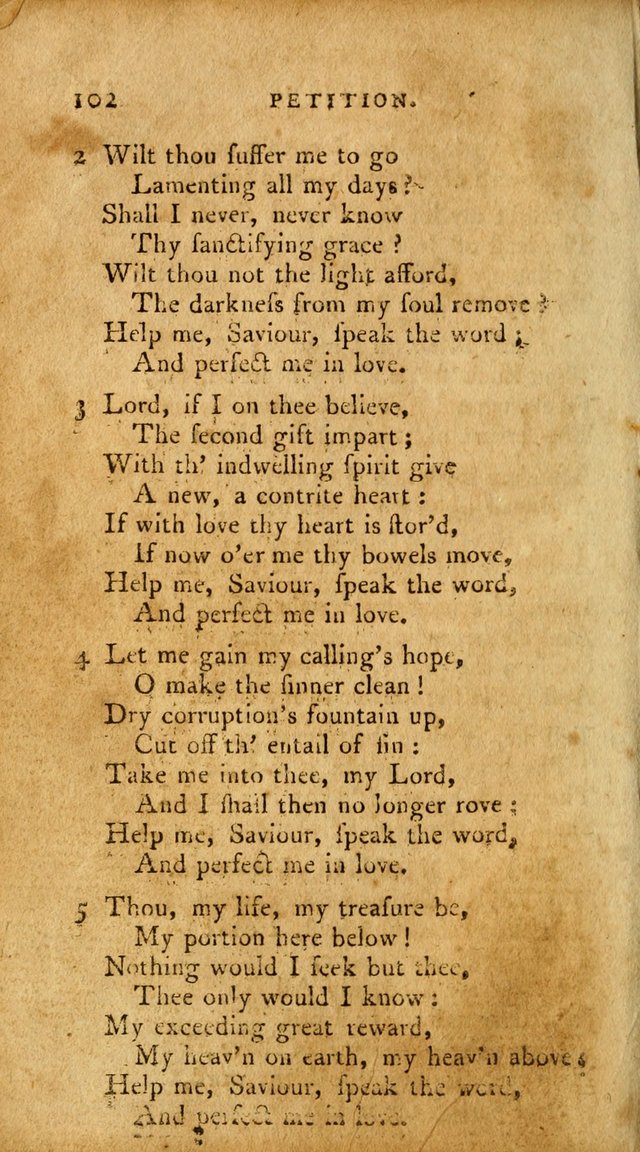 102 PETITION.
2 Wilt thou ſuffer me to go
Lamenting all my days?
Shall I never, never know
Thy ſanctifying grace?
Wilt thou not the light afford,
The darkneſs from my ſoul remove?
Help me, Saviour, ſpeak the word;
And perfect me in love.
3 Lord, if I on thee believe,
The ſecond gift impart;
With th' indwelling ſpirit give
A new, a contrite heart:
If with love thy heart is ſtor'd,
If now o'er me thy bowels move,
Help me, Saviour, ſpeak the word,
And perfect me in love.
4 Let me gain my calling's hope,
O make the ſinner clean!
Dry corruption's fountain up,
Cut off th' entail of ſin:
Take me into thee, my Lord,
And I ſhall then no longer rove:
Help me, Saviour, ſpeak the word,
And perfect me in love.
5 Thou, my life, my treaſure be,
My portion here below!
Nothing would I ſeek but thee,
Thee only would I know:
My exceeding great reward,
My heav'n on earth, my heav'n above:
Help me, Saviour, ſpeak the word,
And perfect me in love.